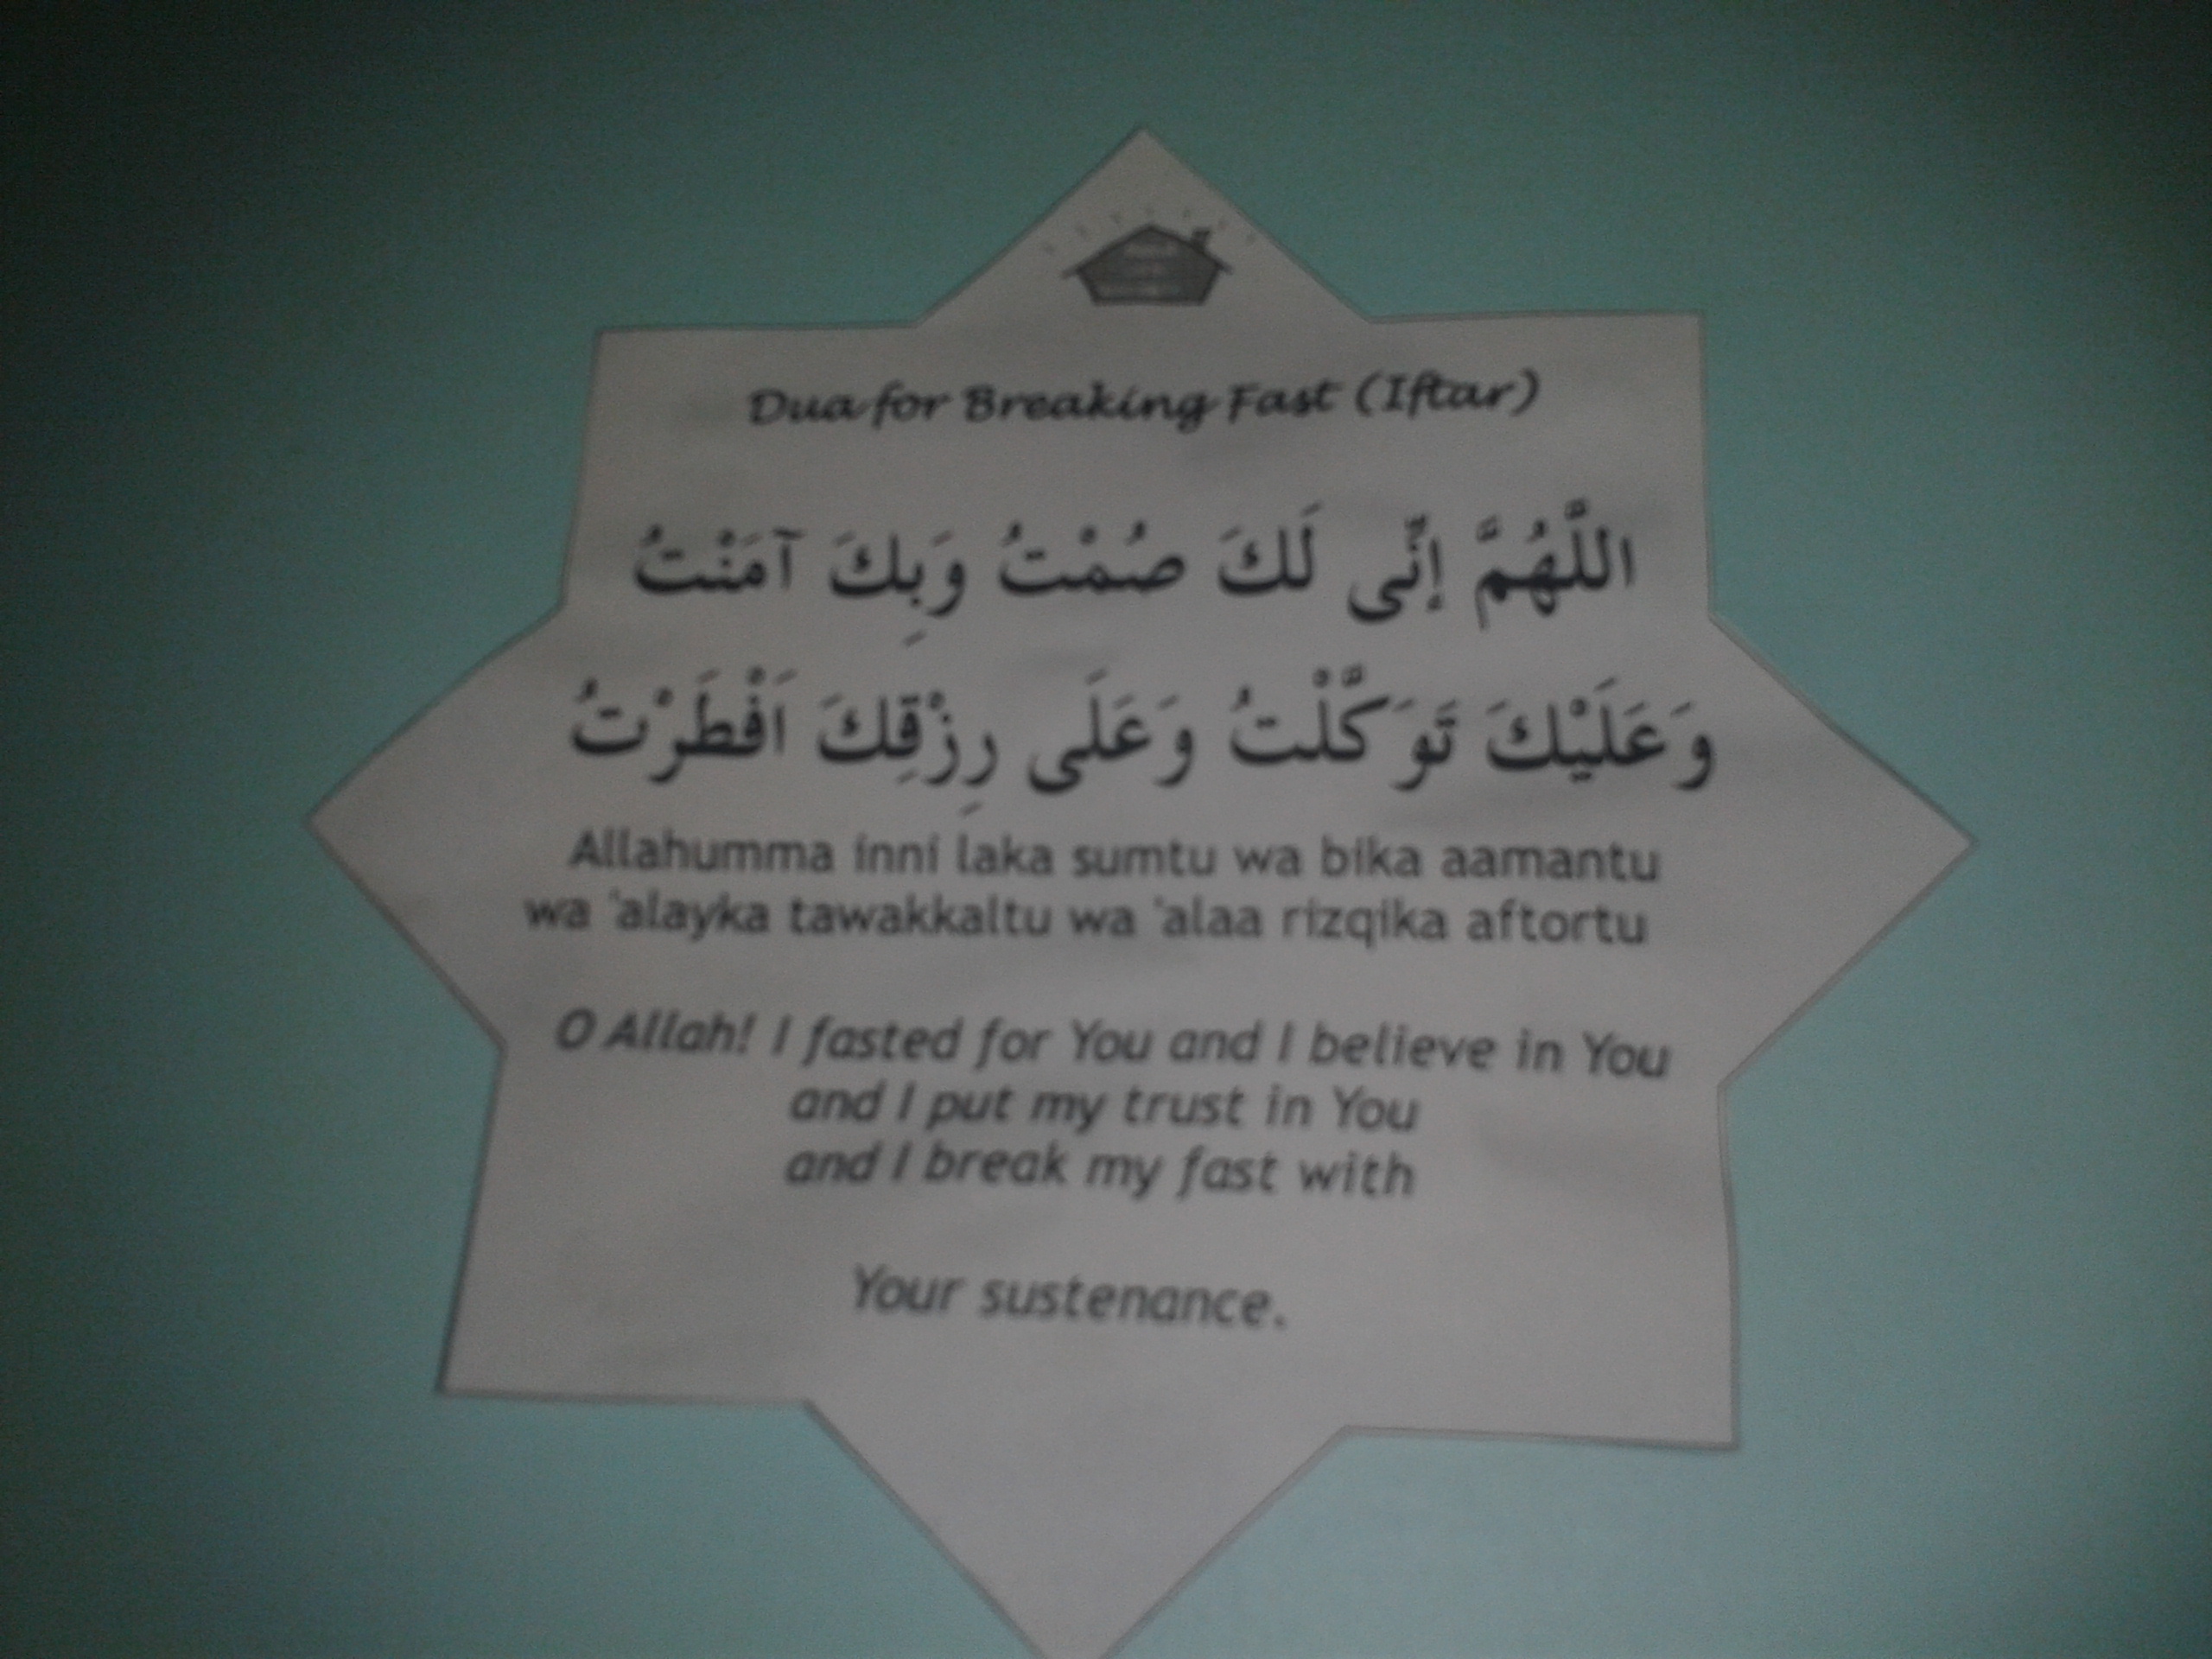 Dua for Breaking Fast (Iftar)
اللَّهُمَّ إِنِّى لَكَ صُمْتُ وَبِكَ آمَنْتُ
وَعَلَيْكَ تَوَكَّلْتُ وَعَلَى رِزْقِكَ اَفْطَرْتُ
Allahumma inni laka sumtu wa bika aamantu
wa 'alayka tawakkaltu wa 'alaa rizqika aftortu
O Allah! I fasted for You and I believe in You
and I put my trust in You
and I break my fast with
Your sustenance.